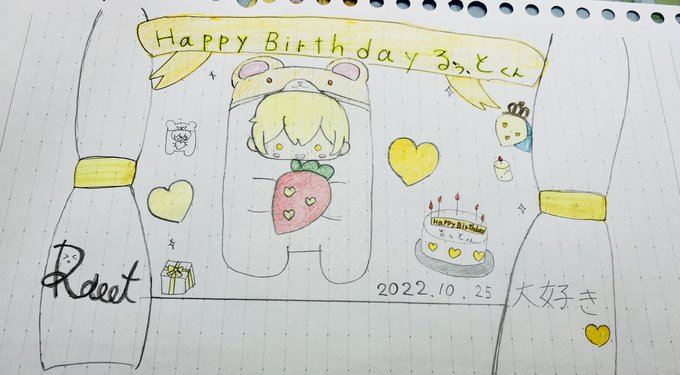 Happy Birthday るぅとくん
Happy Birthday
るぅとくん
2022.10.25
大好き